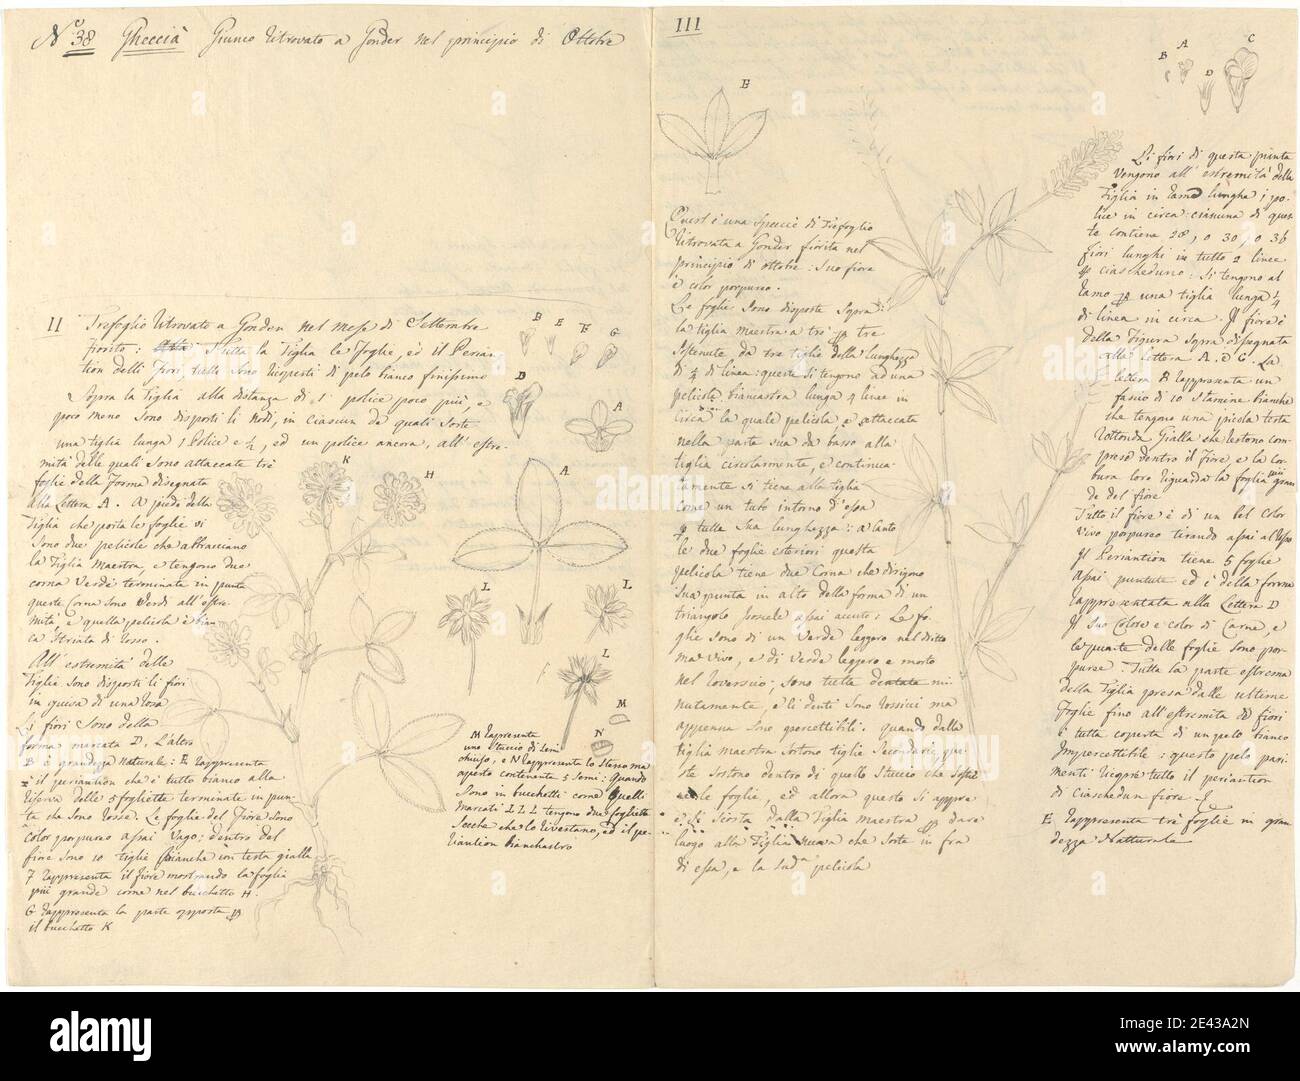 No 38 Gheccià Giunco Ritrovato a Gonder nel principio di Ottobre
II Trefoglio Ritrovato a Gonder nel mese di Settembre
fiorito: tutta la Tiglia le foglie, ed il Perian-
tion delli fiori, tutte sono ricoperti di pelo bianco finissimo
Sopra la Tiglia alla distanza di 1 police poco più, e
poco meno sono disposti li nodi, in ciascun da quali sorte
una tiglia lunga 1 Police e ½, ed un police ancora, all'estre-
mità delle quali sono attaccate trè
foglie della forma disegnata
alla Lettera A. A piedi della
Tiglia che porta le foglie vi
sono due pelicole che abbracciano
la Tiglia Maestra, e tengono due
corna Verde terminate in punta
queste Corna sono Verdi all'estre-
mità, e quella pelicola è bian-
ca striata di rosso.
All'estremità delle
Tiglie sono disposti li fiori
in guisa di una rosa
Li fiori sono della
forma marcata D. L'altro
B è grandezza naturale: E rappresenta
il periantion che è tutto bianco alla
riserva delle 5 fogliette terminate in pun-
ta che sono rosse. Le foglie del fiore sono
color porpureo assai vago; dentro del
fiore sono 10 tiglie bianche con testa gialla
F rappresenta il fiore mostrando la foglia
più grande come nel bucchetto H.
G rappresenta la parte opposta
il bucchetto K
B E F G
D A
K H A
L L
L
M
N
M rapresenta
uno stuccio di semi
chiuso, e N rappresenta lo stesso ma
aperto continente 5 semi: Quando
sono in bucchetti come quelli
marcati L L L tengono due fogliette
secche che lo rivestano, ed il pe-
riantion bianchastro
III
E
B A C
D
Quest è una speccie di Trefoglio
Ritrovata a Gonder fiorita nel
principio di ottobre: suo fiore
è color porpureo.
Le foglie sono disposte sopra
la tiglia maestra a trè p trè
sostenute da tre tiglie della lunghezza
di ¼ di linea: queste si tengono ad una
pelicola biancastra lunga 4 linee in
circa la quale pelicola è attaccata
nella parte sua da basso alla
tiglia circolarmente, e continua-
tamente si tiene alla tiglia
come un tubo intorno d'essa
p tutta sua lunghezza: a canto
le due foglie esteriori questa
pelicola tiene due Corna che dirigono
sua punta in alto della forma di un
triangolo Isocele assai accuto: Le fo-
glie sono di un Verde leggero nel dritto
ma vivo, e di verde leggero e morto
nel roverscio; sono tutte dentate mi-
nutamente, e li denti sono rossicci ma
appenna sono percettibili. Quando dalla
tiglia maestra sortono tiglie secondarie, que-
ste sortono dentro di quello stuccio che sostie-
ne le foglie, ed allora questo si appre
e si scosta dalla tiglia maestra p dare
luogo alla tiglia nuova che sorte in fra
di essa, e la sud.a pelicola
Li fiori di questa pianta
vengono all'estremità della
tiglia in ramo lungha 1 po-
lice in circa: ciascuna di que-
te contiene 28, o 30, o 36
fiori lunghi in tutto 2 linee
p ciascheduno: si tengono al
ramo p una tiglia lunga ¼
di linea in circa. Il fiore è
della figura sopra disegnata
alle lettere A. D C. La
lettera B rappresenta un
fascio di 10 stamine bianche
che tengono una picola testa
rottonda Gialla che restono com-
preso dentro il fiore e la cor-
bura loro riguarda la foglia più gran-
de del fiore
Tutto il fiore è di un bel color
vivo porpureo tirando assai al rosso
Il Periantion tiene 5 foglie
assai puntute ed è della forma
rappresentata alla Lettera D
Il suo Colore è color di Carne, e
le punte delle foglie sono por-
puree. Tutta la parte estrema
della Tiglia presa dalle ultime
foglie fino all'estremità de fiori
è tutta coperta di un pelo bianco
impercettibile: questo pelo pari-
menti ricopre tutto il periantion
di ciaschedun fiore.
E rappresenta trè foglie in gran-
dezza Natturale
alamy
Image ID: 2E43A2N
www.alamy.com